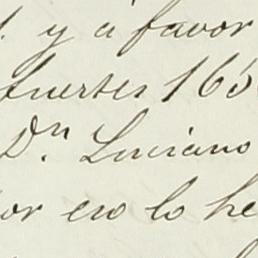 y á favor
fuertes 165
Dn. Luciano
or eso lo he